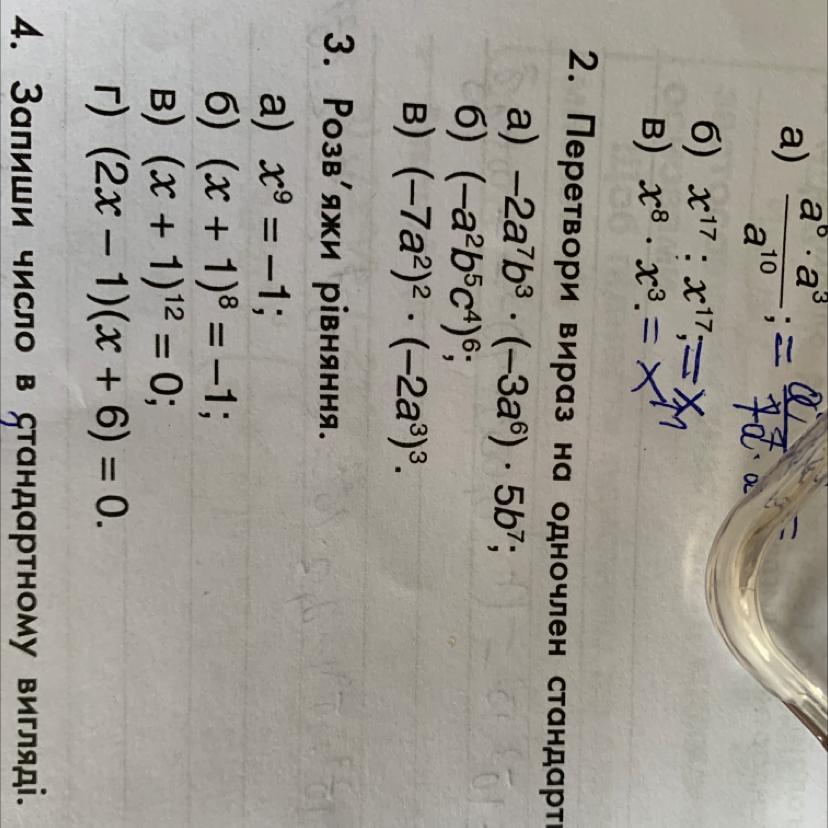 а) a⁶ · a³ / a¹⁰ ; =
б) x¹⁷ : x¹⁷; = x
в) x⁸ · x³. = x¹¹
2. Перетвори вираз на одночлен
а) −2a⁷b³ · (−3a⁶) · 5b⁷;
б) (−a²b⁵c⁴)⁶;
в) (−7a²)² · (−2a³)³.
3. Розв'яжи рівняння.
а) x⁹ = −1;
б) (x + 1)⁸ = −1;
в) (x + 1)¹² = 0;
г) (2x − 1)(x + 6) = 0.
4. Запиши число в стандартному вигляді.